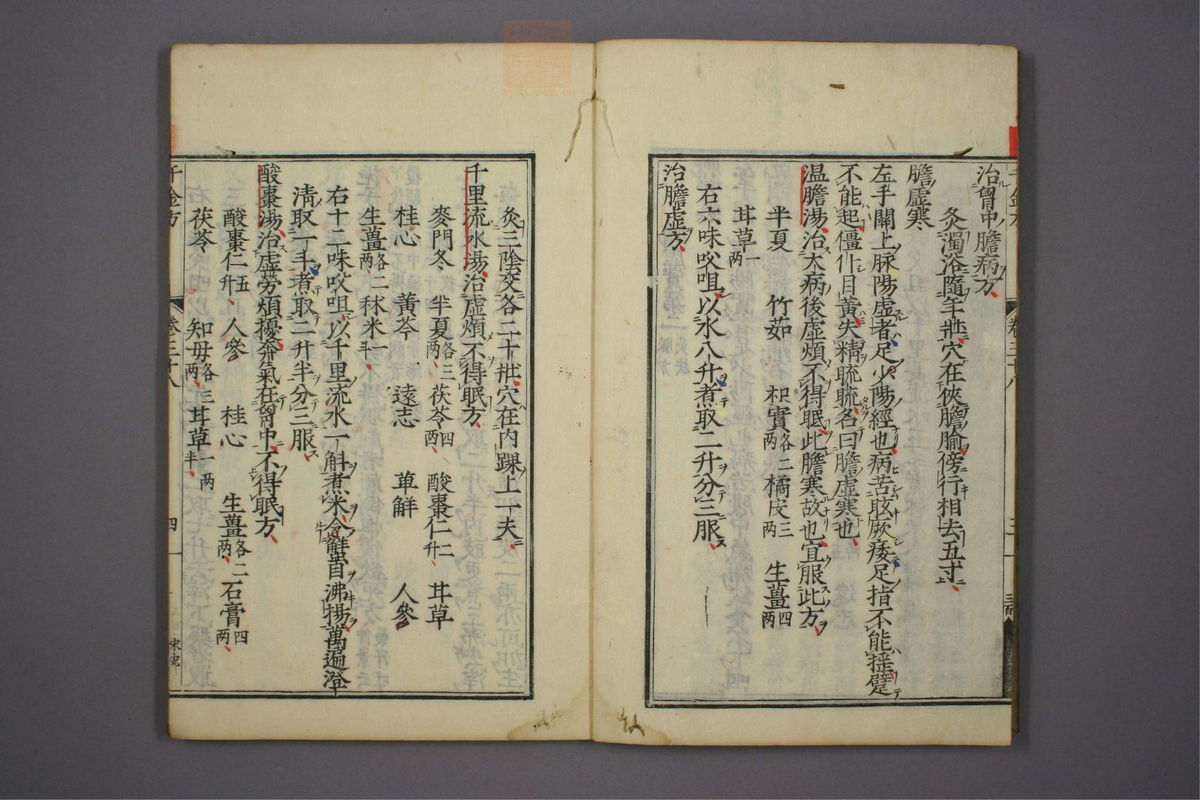 治胷中膽病方
灸濁浴隨年壯穴在俠膽腧傍行相去五寸
膽虛寒
左手關上脉陽虛者足少陽經也病苦眩厥痿足指不能揺躄
不能起僵仆目黄失精䀮䀮名曰膽虛寒也
温膽湯治大病後虛煩不得眠此膽寒故也宜服此方
半夏 竹茹 枳實各二两 橘皮三两 生薑四两
甘草一两
右六味㕮咀以水八升煮取二升分三服
治膽虛方
灸三陰交各二十壯穴在内踝上一夫
千里流水湯治虛煩不得眠方
麥門冬 半夏各三两 茯苓四两 酸棗仁二升 甘草
桂心 黄芩 逺志 萆解 人參
生薑各二两 秫米一斗
右十二味㕮咀以千里流水一斛煮米令蟹目沸揚萬遍澄
清取一斗煮取二升半分三服
酸棗湯治虛勞煩擾奔氣在胷中不得眠方
酸棗仁五升 人參 桂心 生薑各二两 石膏四两
茯苓 知母各三两 甘草一两半
千金方 卷三十八 四